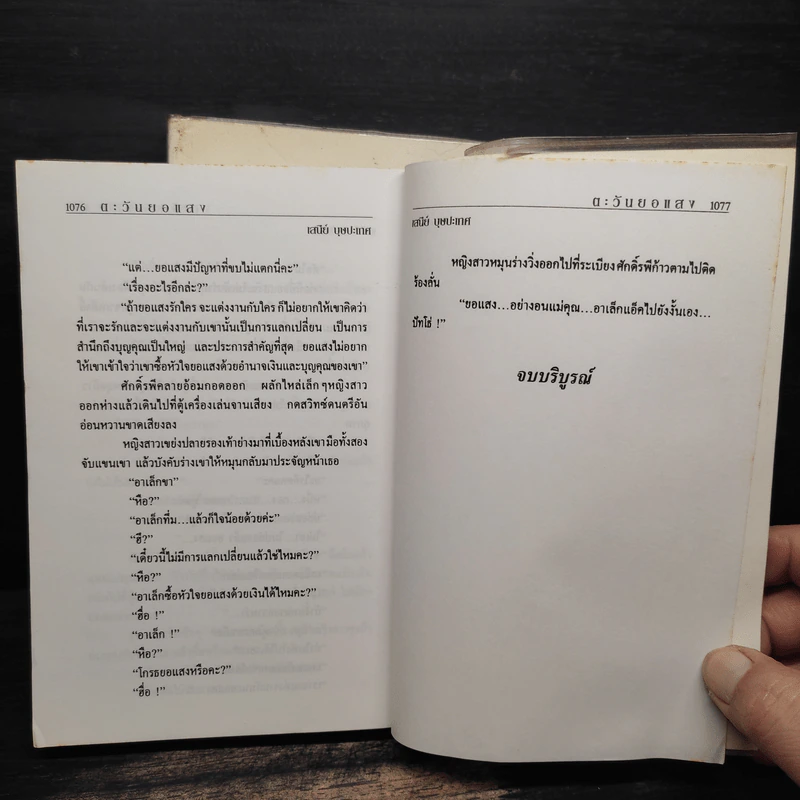 1076 ตะวันยอแสง
เสนีย์ บุษปะเกศ
“แต่...ยอแสงมีปัญหาที่ขบไม่แตกนี่คะ”
“เรื่องอะไรอีกล่ะ?”
“ถ้ายอแสงรักใคร จะแต่งงานกับใคร ก็ไม่อยากให้เขาคิดว่า
ที่เราจะรักและจะแต่งงานกับเขานั้นเป็นการแลกเปลี่ยน เป็นการ
สำนึกถึงบุญคุณเป็นใหญ่ และประการสำคัญที่สุด ยอแสงไม่อยาก
ให้เขาเข้าใจว่าเขาซื้อหัวใจยอแสงด้วยอำนาจเงินและบุญคุณของเขา”
ศักดิ์รพีคลายอ้อมกอดออก ผลักไหล่เล็กๆหญิงสาว
ออกห่างแล้วเดินไปที่ตู้เครื่องเล่นจานเสียง กดสวิทซ์ดนตรีอัน
อ่อนหวานขาดเสียงลง
หญิงสาวเขย่งปลายรองเท้าย่างมาที่เบื้องหลังเขามือทั้งสอง
จับแขนเขา แล้วบังคับร่างเขาให้หมุนกลับมาประจัญหน้าเธอ
“อาเล็กขา”
“หือ?”
“อาเล็กทึ่ม...แล้วก็ใจน้อยด้วยค่ะ”
“ฮึ?”
“เดี๋ยวนี้ไม่มีการแลกเปลี่ยนแล้วใช่ไหมคะ?”
“หือ?”
“อาเล็กซื้อหัวใจยอแสงด้วยเงินได้ไหมคะ?”
“ฮื่อ !”
“อาเล็ก !”
“หือ?”
“โกรธยอแสงหรือคะ?”
“ฮื่อ !”
ตะวันยอแสง 1077
เสนีย์ บุษปะเกศ
หญิงสาวหมุนร่างวิ่งออกไปที่ระเบียง ศักดิ์รพีก้าวตามไปติด
ร้องลั่น
“ยอแสง...อย่างอนแม่คุณ...อาเล็กแอ็คไปยังงั้นเอง...
ปัทโธ่ !”
จบบริบูรณ์